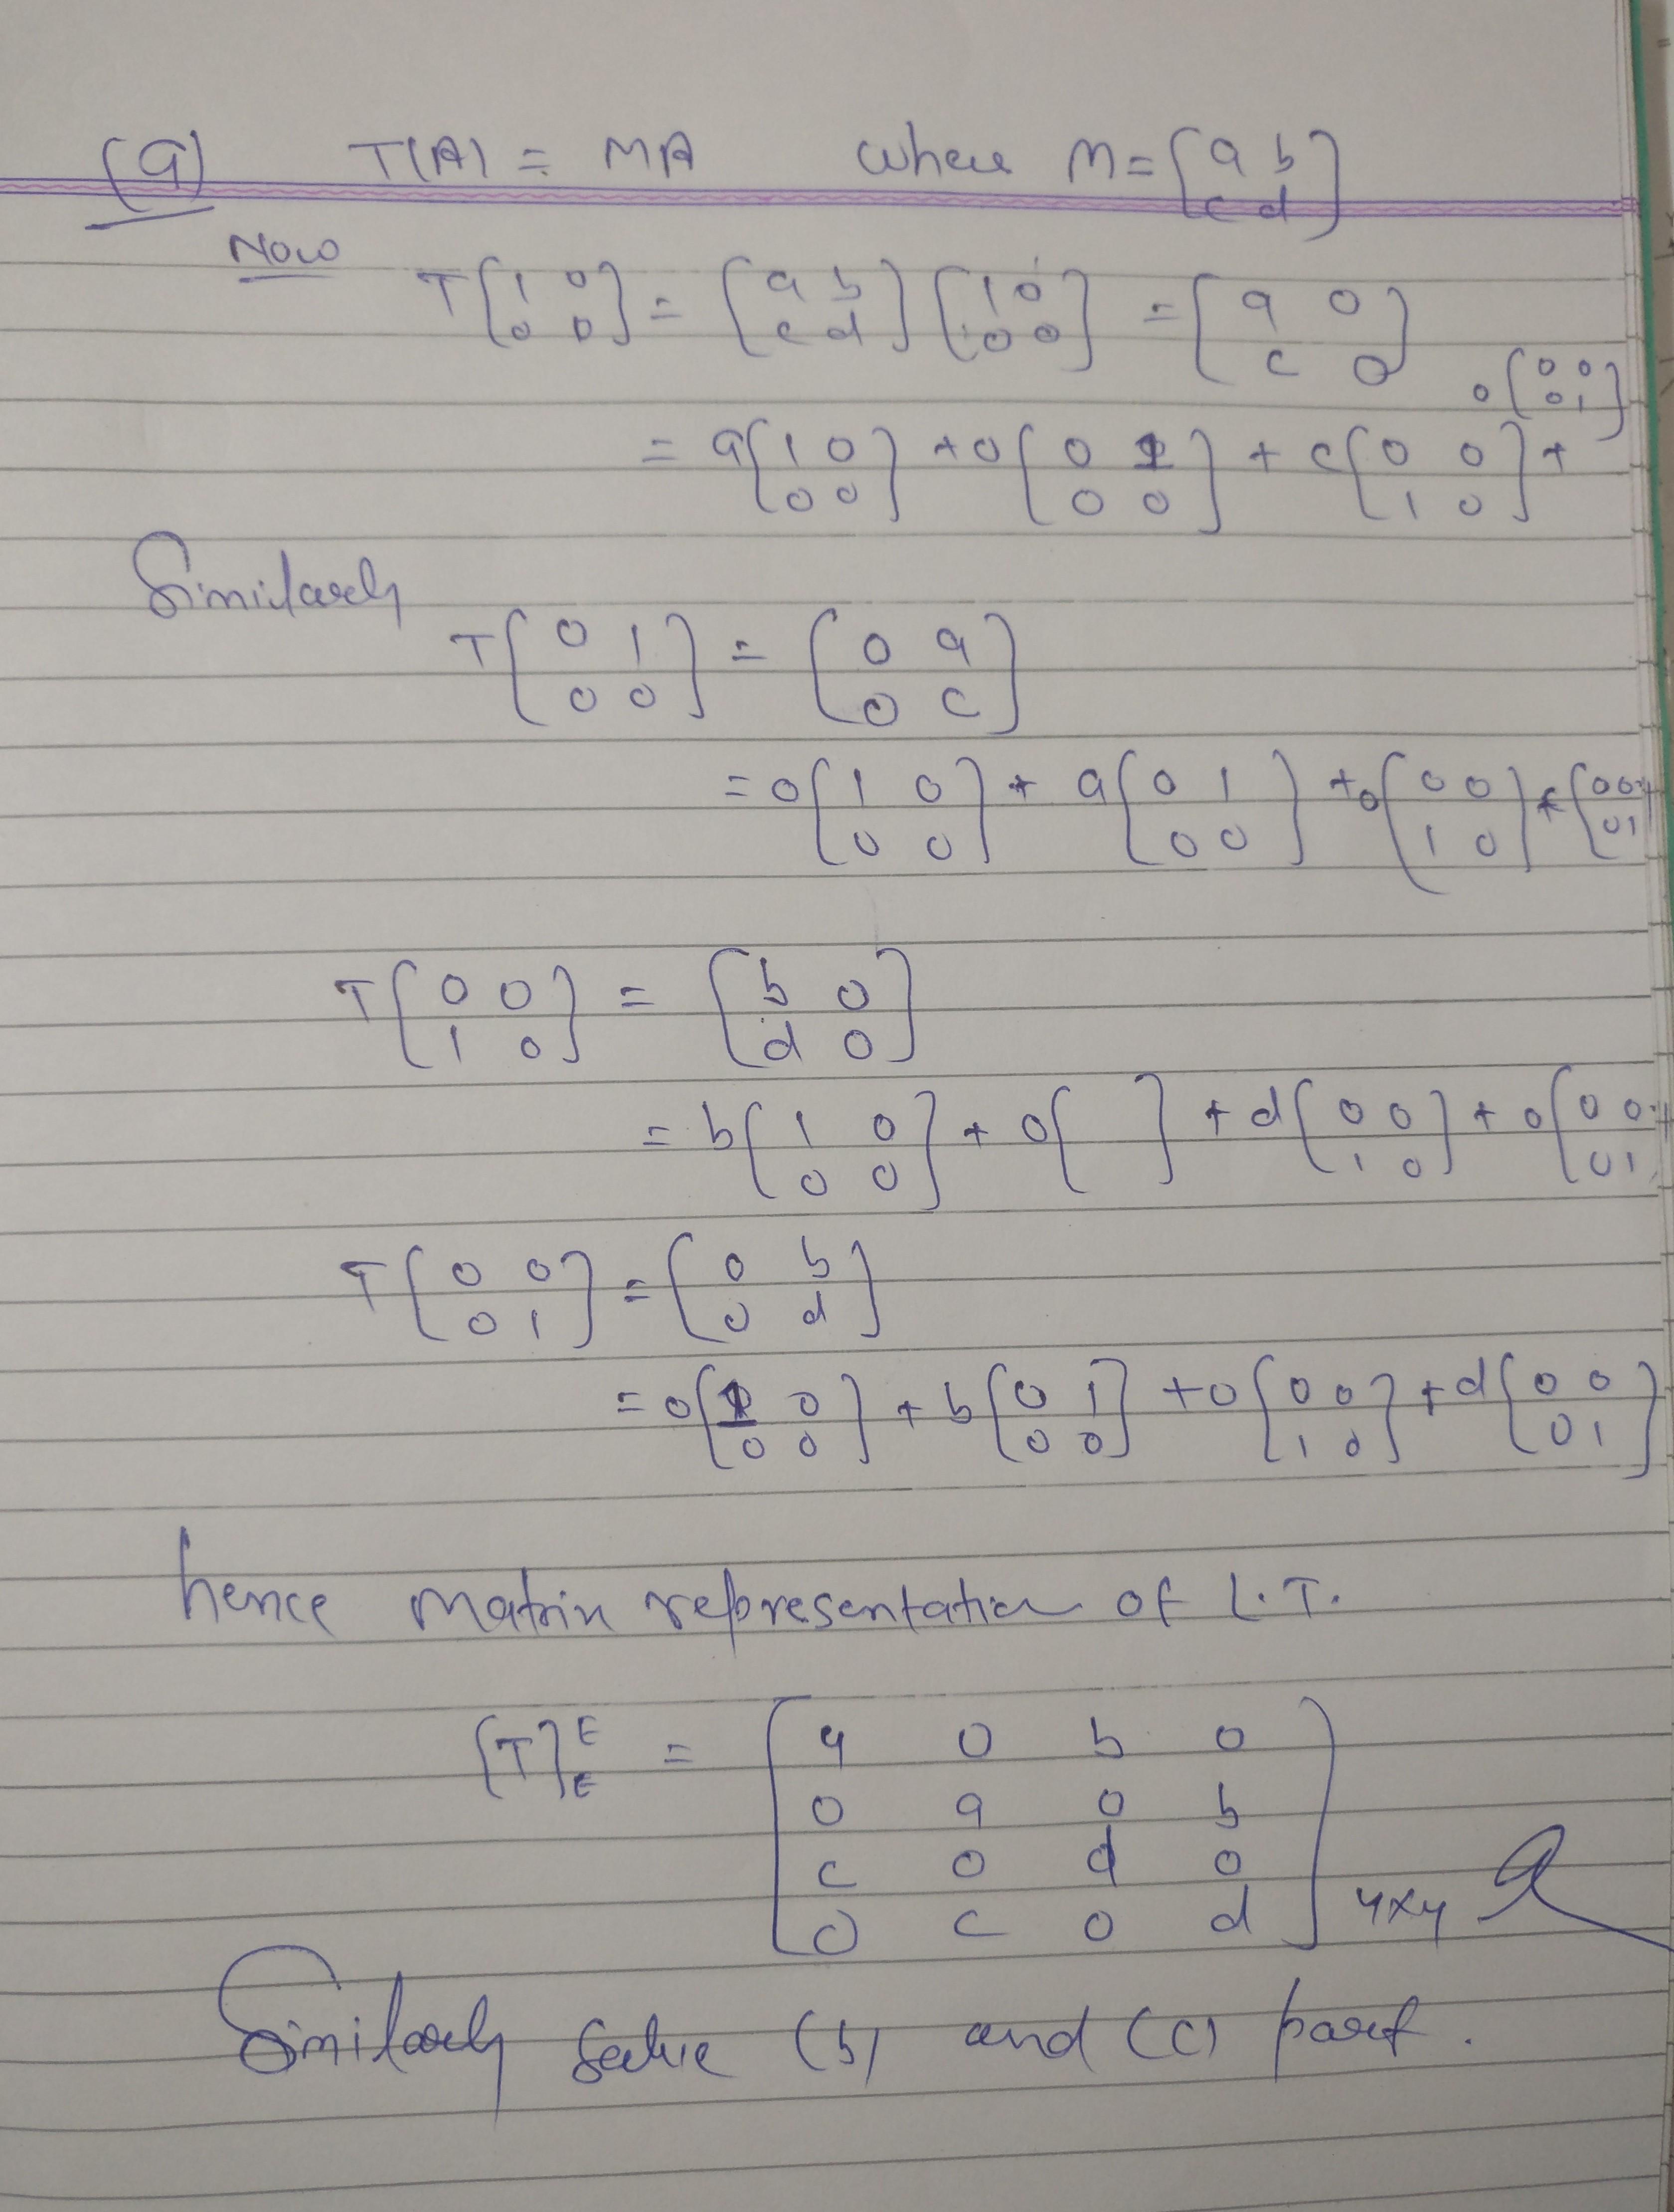 (a) T(A) = MA where M = [a b
c d]
Now T[1 0
0 0] = [a b
c d] [1 0
0 0] = [a 0
c 0]
= a[1 0
0 0] + 0[0 1
0 0] + c[0 0
1 0] + 0[0 0
0 1]
Similarly
T[0 1
0 0] = [0 a
0 c]
= 0[1 0
0 0] + a[0 1
0 0] + 0[0 0
1 0] + c[0 0
0 1
T[0 0
1 0] = [b 0
d 0]
= b[1 0
0 0] + 0[ ] + d[0 0
1 0] + 0[0 0
0 1
T[0 0
0 1] = [0 b
0 d]
= 0[1 0
0 0] + b[0 1
0 0] + 0[0 0
1 0] + d[0 0
0 1]
hence matrix representation of L.T.
[T]E E = [a 0 b 0
0 a 0 b
c 0 d 0
0 c 0 d] 4x4
Similarly solve (b) and (c) part.